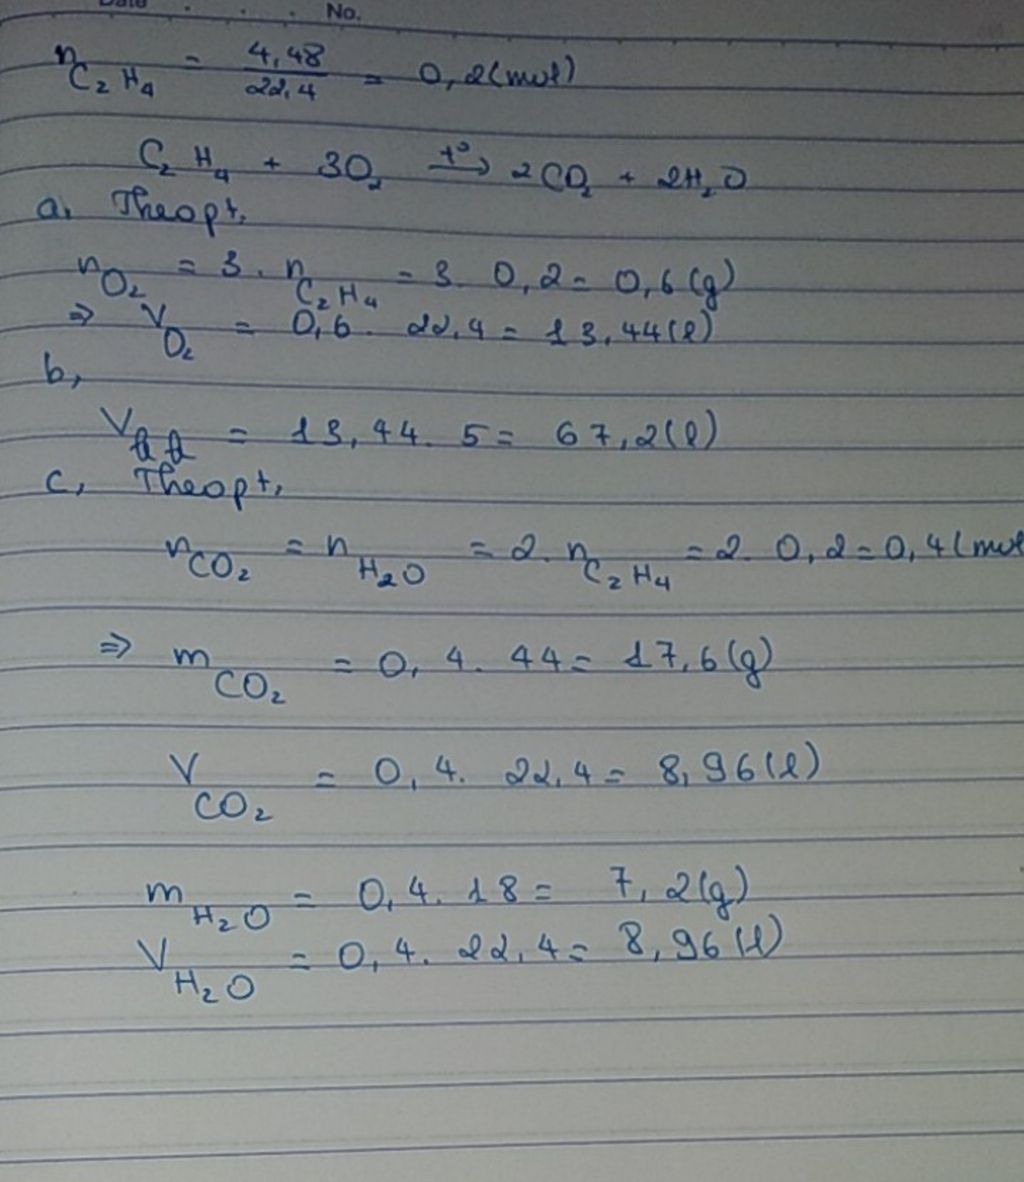 Date . . . No.
n C₂H₄ = 4,48 / 22,4 = 0,2 (mol)
C₂H₄ + 3O₂ t° → 2CO₂ + 2H₂O
a, Theo pt,
n O₂ = 3 . n C₂H₄ = 3 . 0,2 = 0,6 (g)
⇒ V O₂ = 0,6 . 22,4 = 13,44 (l)
b,
V kk = 13,44 . 5 = 67,2 (l)
c, Theo pt,
n CO₂ = n H₂O = 2 . n C₂H₄ = 2 . 0,2 = 0,4 (mol
⇒ m CO₂ = 0,4 . 44 = 17,6 (g)
V CO₂ = 0,4 . 22,4 = 8,96 (l)
m H₂O = 0,4 . 18 = 7,2 (g)
V H₂O = 0,4 . 22,4 = 8,96 (l)